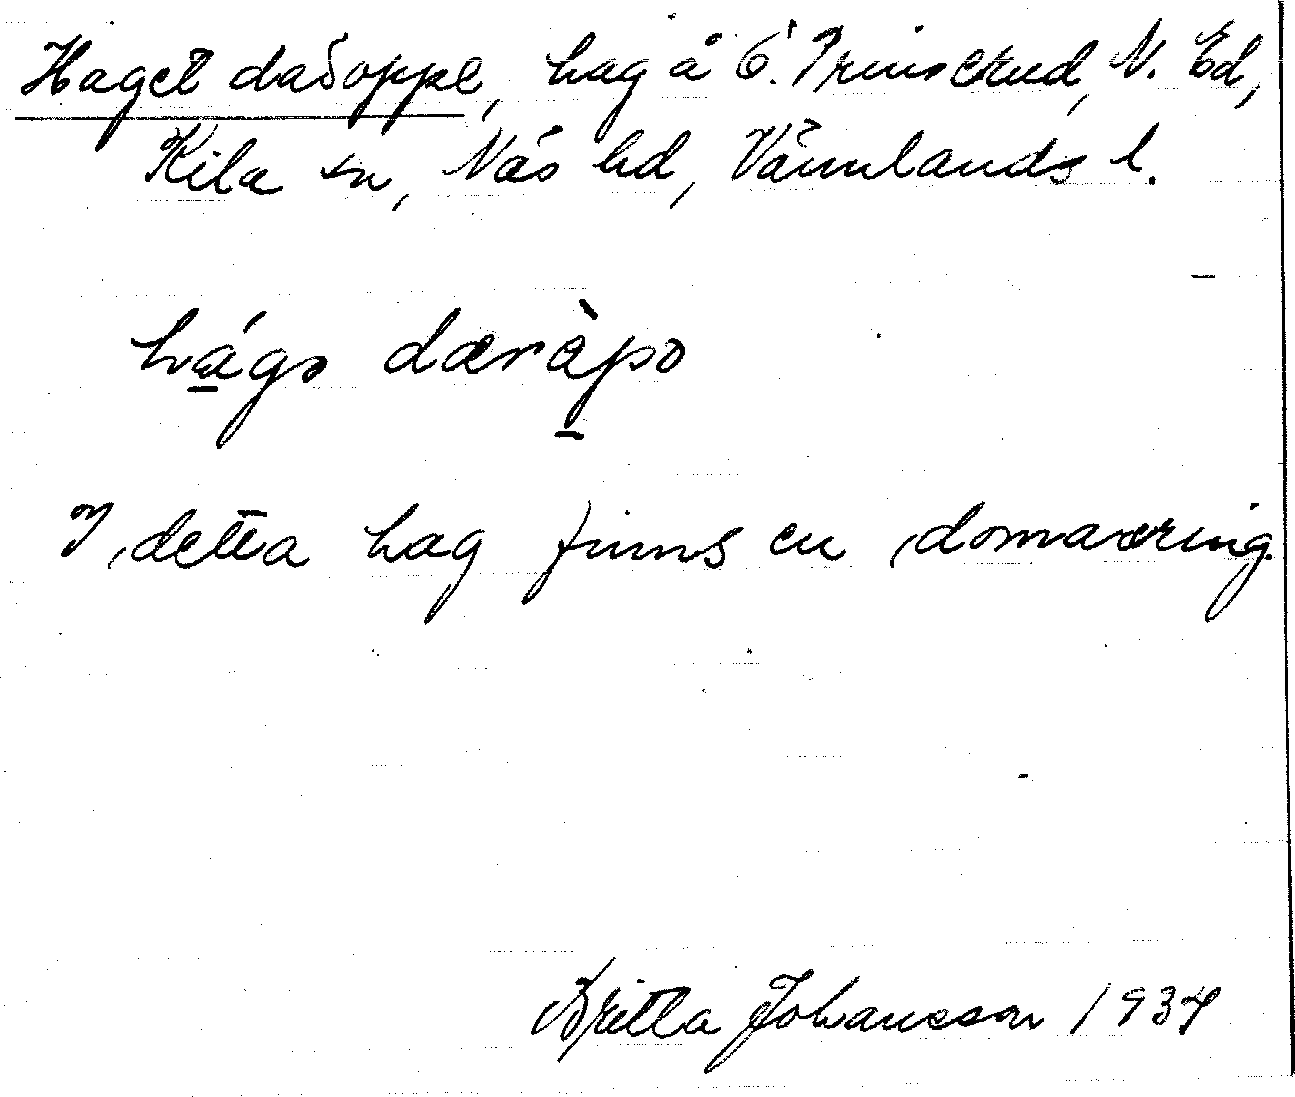 Haget daroppe, hag å Ö. Prinserud, N. Ed,
Kila sn, Näs hd, Värmlands l.
hágə dæràpə
I detta hag finns en domarering.
Britta Johansson 1934